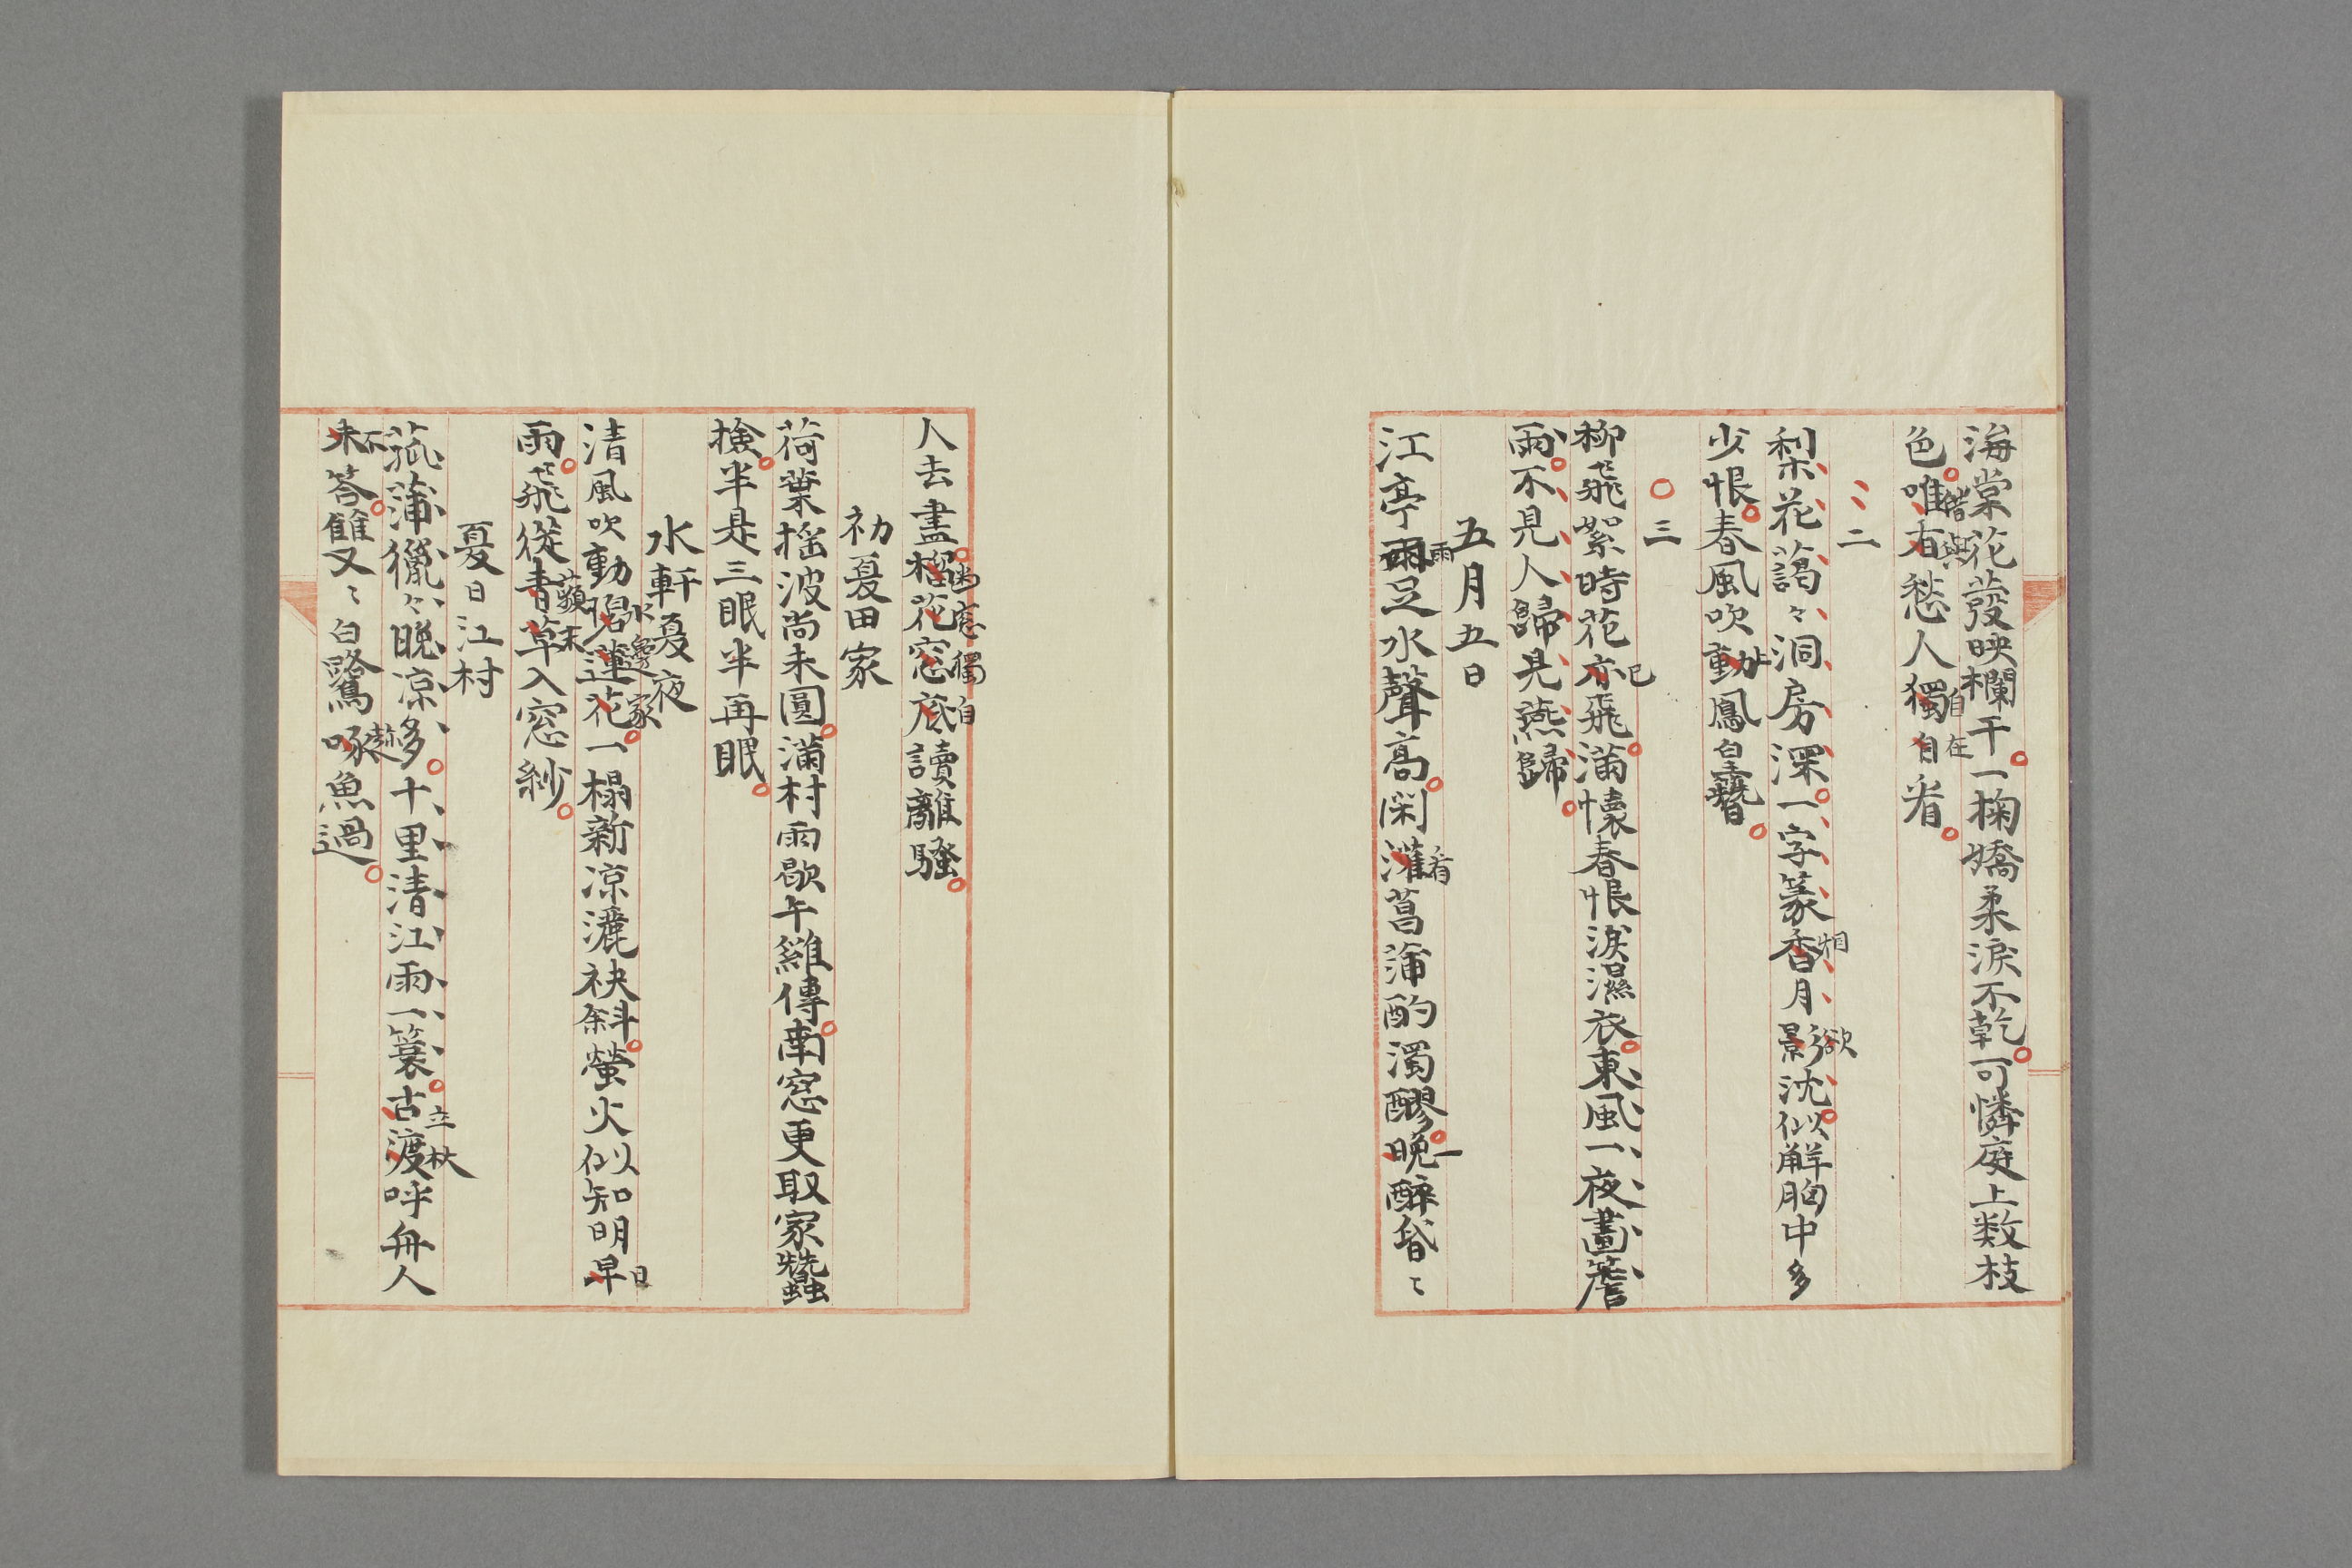 海棠花發映欄干一掬嬌柔淚不乾可憐庭上数枝
色唯有愁人獨自看
借與
自在
二
梨花藹々洞房深一字篆香月影沈似解胸中多
烟
欲
少恨春風吹動鳳皇簪
上
三
柳飛絮時花亦飛滿懷春恨淚濕衣東風一夜畫簷
已
雨不見人歸見燕歸
五月五日
江亭雨足水聲高閑灌菖蒲酌濁醪晚醉昏〻
雨
看
一
人去盡榴花窓底讀離騷
幽窓獨自
初夏田家
荷葉揺波尚未圓滿村雨歇午雞傳南窓更取家蠶
撿半是三眠半再眠
水軒夏夜
清風吹動蓮花一榻新凉灑袂斜螢火似知明早
水邊家
日
雨飛從青草入窓紗
蘋末
夏日江村
菰蒲獵々晚凉多十里清江雨一簑古渡呼舟人
立杖
未答雙〻白鷺啄魚過
不